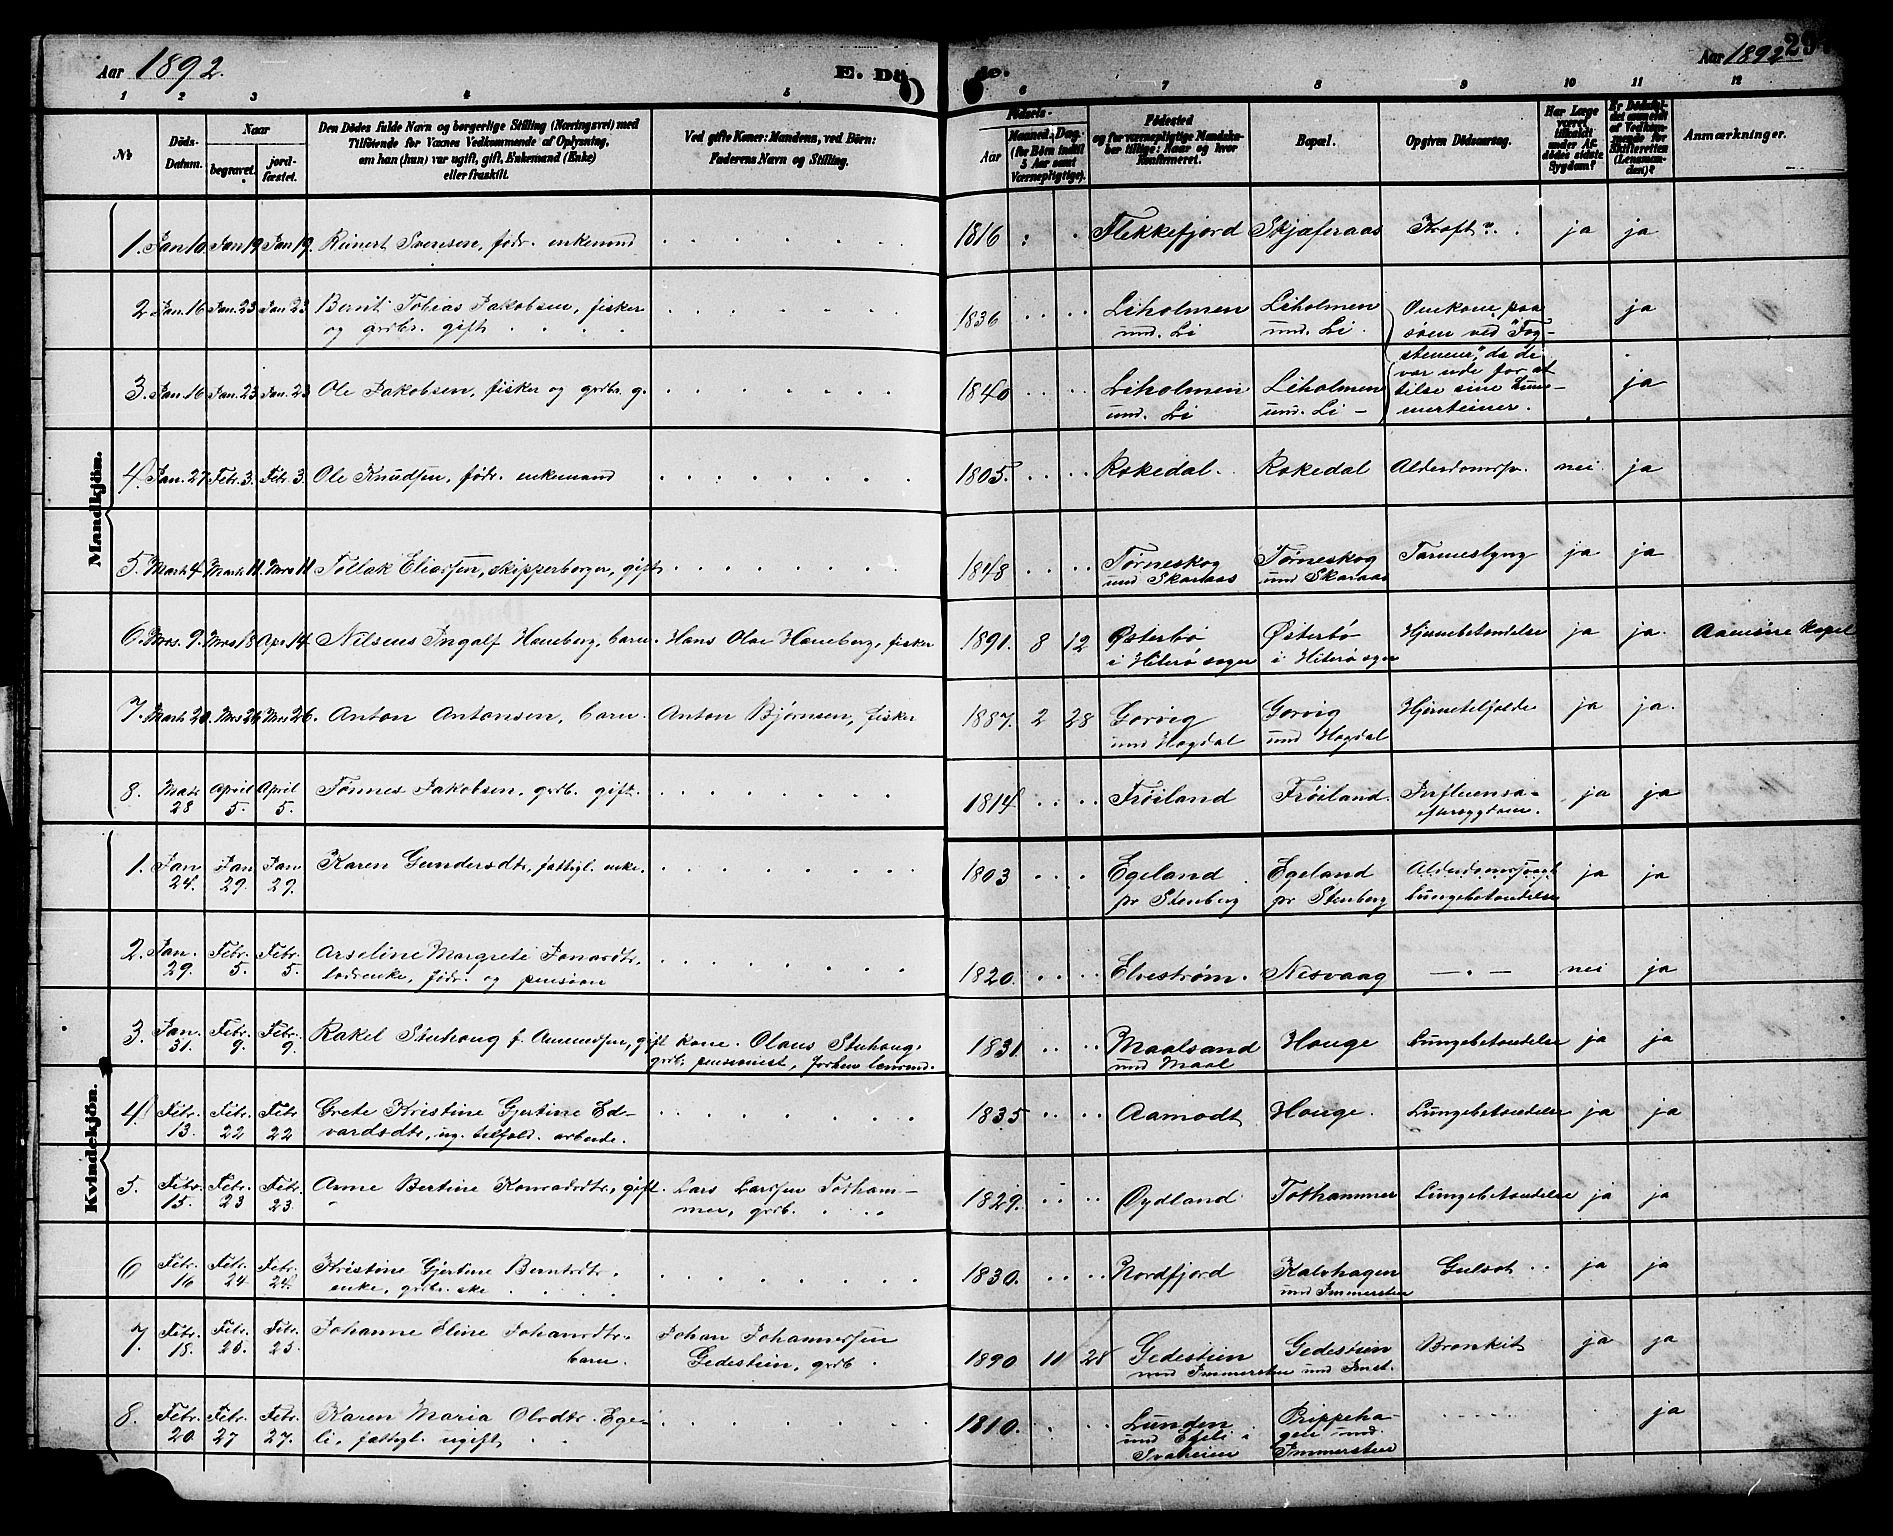 Aar 1892.
E. Dö
de.
Aar 1892
29
1 2 3 4 5 6 7 8 9 10 11 12
№
Döds-Datum.
Naar
begravet.
jord-fæstet.
Den Dödes fulde Navn og borgerlige Stilling (Næringsvei) med
Tilföiende for Voxnes Vedkommende af Oplysning,
om han (hun) var ugift, gift, Enkemand (Enke)
eller fraskilt.
Ved gifte Koner: Mandens, ved Börn:
Faderens Navn og Stilling.
Födsels-
Aar
Maaned. Dag.
(for Börn indtil
5 Aar samt
Værnepligtige).
Födested
og for værnepligtige Mandska-
ber tillige: Naar og hvor
konfirmeret.
Bopæl.
Opgiven Dödsaarsag.
Har Læge
været
tilkaldt
under Af-
dødes sidste
Sygdom?
Er Dödsfal-
det anmeldt
af Vedkom-
mende for
Skifteretten
(Lensman-
den)?
Anmærkninger.
Mandkjön.
1. Jan 10 Jan 19 Jan 19. Reinert Svensen, födr. enkemand 1816 Flekkefjord Skjæferaas Kræft ja ja
2 Jan. 16 Jan. 23 Jan 23 Bernt Tobias Jakobsen, fisker
og grdbr. gift 1836 Liholmen
und. Li Liholmen
und. Li. Omkom paa
søen ved "Fog-
stenene", da de
var ude for at
tilse sine
ja
3. Jan 16 Jan. 23 Jan. 23 Ole Jakobsen, fisker og grdbr. g. 1840 Liholmen
und. Li Liholmen
und. Li ja
4. Jan. 27 Febr. 3. Febr. 3. Ole Knudsen, födr. enkemand 1805. Rokedal. Rokedal nei ja
5. Mart. 4 Mart. 11. Mrs 11 Tollak Eliassen, skipperborger, gift 1848 Tørneskog
und Skaraas Tørneskog
und Skaraas Tarmeslyng ja ja
6. Mrs. 9. Mrs 18 Apr. 14. Nilsens Ingolf Haneberg, barn. Hans Olai Haneberg, fisker 1891. 8 12 Østerbö
i Hiterö sogn Østerbö
i Hiterö sogn Hjernebetændelse ja ja. Aamöre Kapel
7. Mart. 20. Mrs 26 Mrs 26. Anton Antonsen, barn. Anton Bjørnsen, fisker 1887. 2 28 Gorvig
und Hogdal Gorvig
und Hogdal ja ja.
8. Mars
28 April
5. April
5. Tønnes Jakobsen, grdb. gift. 1814 Frøiland Frøiland. Influensa- ja ja
Kvindekjön.
1. Jan
24. Jan
29. Jan
29. Karen Gundersdtr, fattigl. enke. 1803 Egeland
pr Stenberg Egeland
pr Stenberg
Lungebetændelse ja ja
2. Jan.
29. Febr.
5. Febr.
5. Arseline Margrete Jonasdtr.
lodsenke, födr. og pension 1820. Elvestrøm. Nesvaag nei ja
3. Jan.
31. Febr.
9. Febr.
9. Rakel Stuhaug f. Amundsen, gift kone. Olaus Stuhaug,
grdb. pensionist, 1831. Maalsand
und Maal Houge Lungebetændelse ja ja
4. Febr.
13. Febr.
22 Febr
22 Grete Kristine Gjertine Ed-
vardsdtr, ug. tilfæld. arbeide. 1835 Aamodt Houge. Lungebetændelse ja ja
5. Febr.
15. Febr.
23 Febr.
23. Anne Bertine Konradsdtr, gift. Lars Larssen Totham-
mer, grdb. 1829. Øydland Tothammer Lungebetændelse ja ja
6 Febr.
16 Febr.
24. Febr.
24. Kristine Gjertine Berntsdtr.
enke, grdbr. ske 1830. Nordfjord Kalvhagen
und Immersten Gulsot ja ja
7. Febr.
18. Febr.
25. Febr.
25. Johanne Eline Johansdtr.
barn. Johan Johannessen
Gedestien, grdb. 1890 11 28 Gedestien
und Immersten Gedestien
und Imst. Bronkit ja ja
8. Febr.
20. Febr.
27 Febr.
27. Karen Maria Olsdtr. Ege-
li, fattigl. ugift 1810. Lunden
und Egeli i
Rippeha-
gen und.
Immersten ja